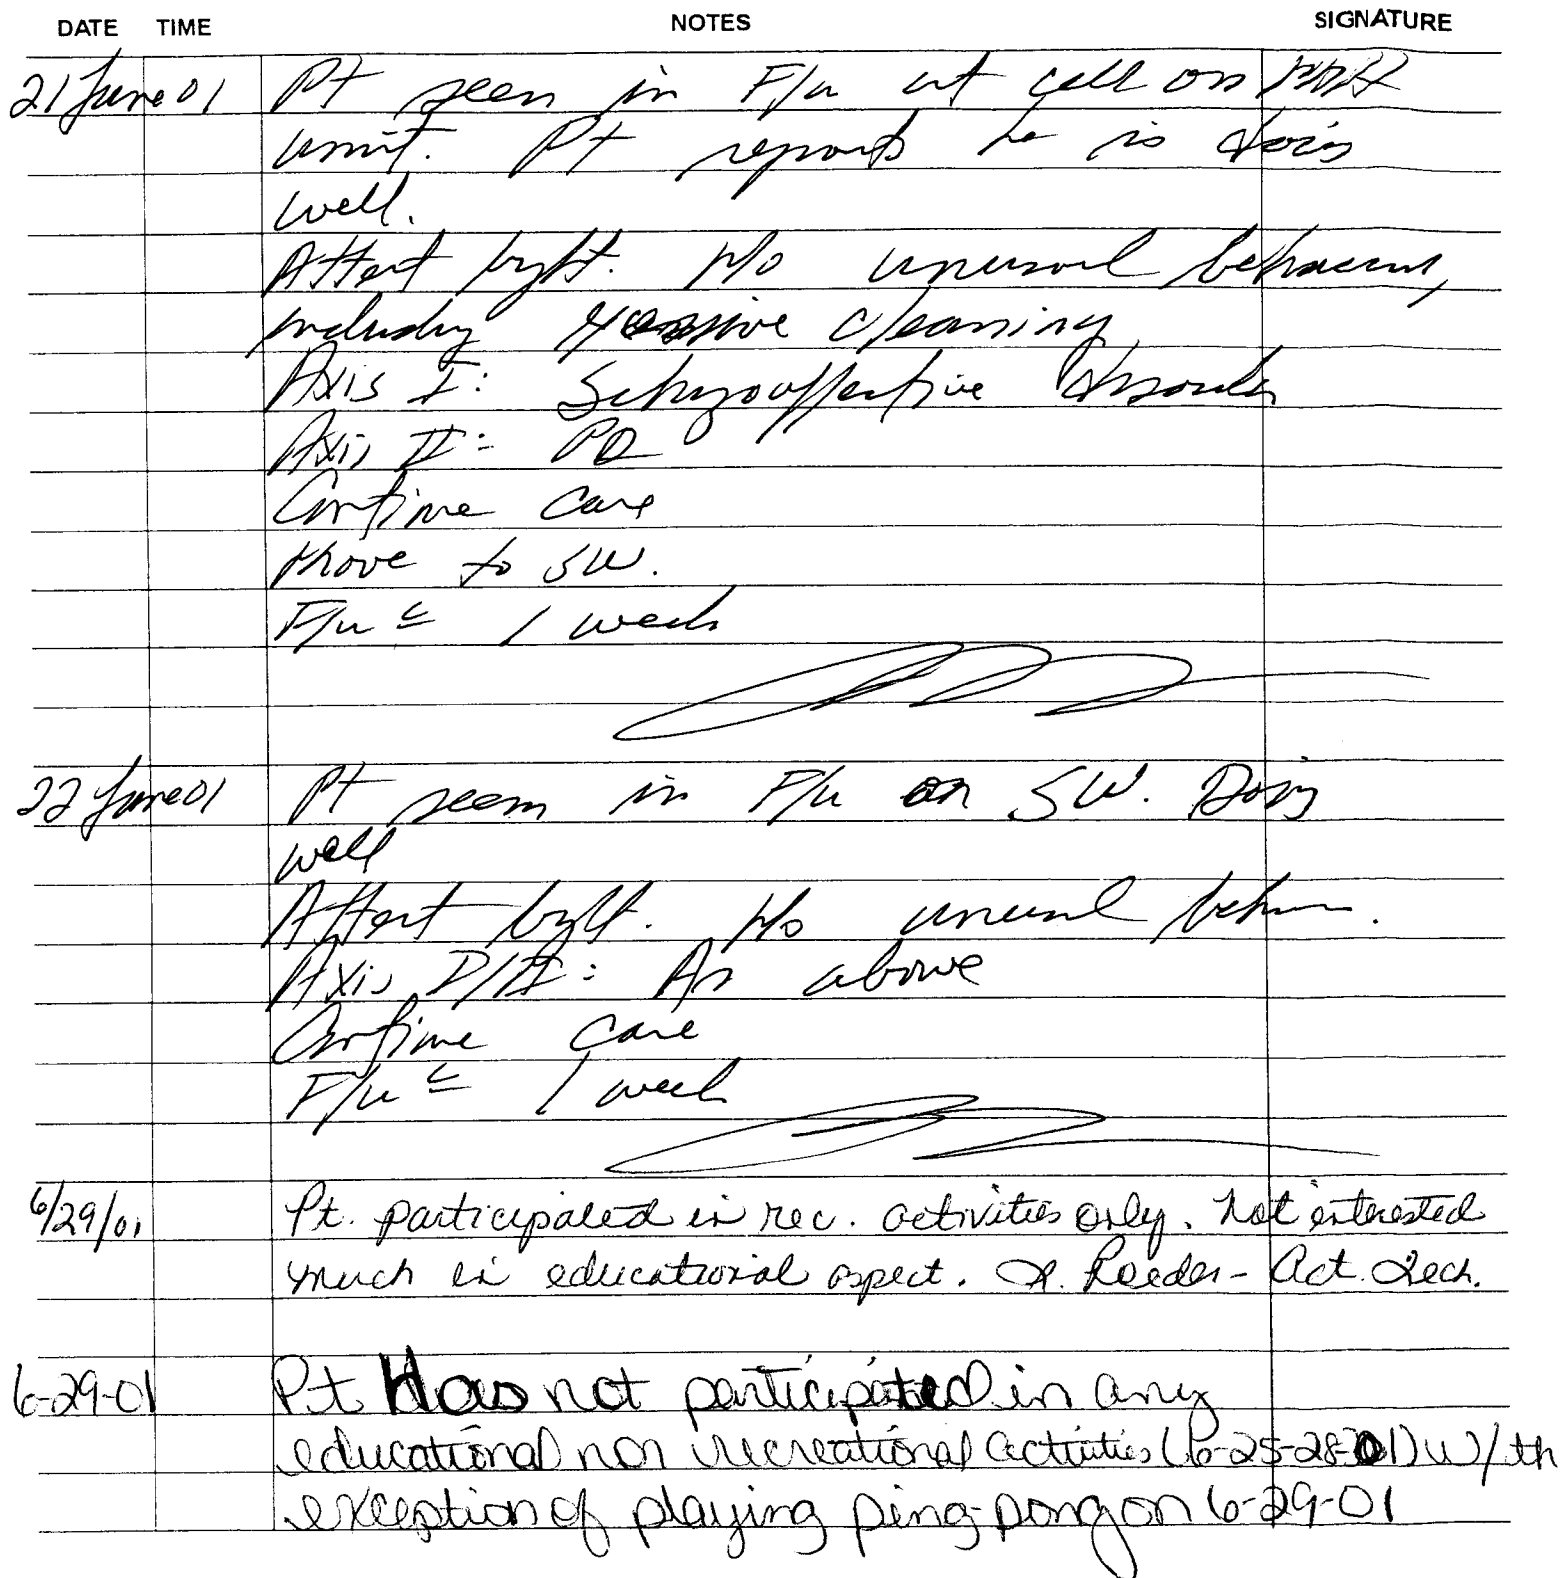 DATE TIME NOTES SIGNATURE
21 June 01 Pt seen in F/u at cell on
unit. Pt reports he is doing
well.
Affect bright. No unusual behaviors,
including excessive cleaning
Axis I: Schizoaffective disorder
Axis II: PD
Continue care
Move to SW.
F/u c 1 week
22 June 01 Pt seen in F/u on SW. Doing
well
Affect bright. No unusual behavior.
Axis I/II: As above
Continue care
F/u c 1 week
6/29/01 Pt. participated in rec. activities only. Not interested
much in educational aspect. Reeder - Act. Tech.
6-29-01 Pt Has not participated in any
educational nor recreational activities (6-25-28-01) w/th
exception of playing ping-pong on 6-29-01